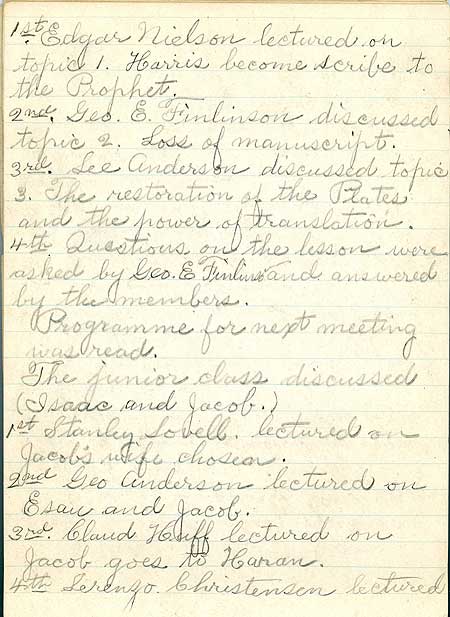 1st. Edgar Nielson lectured on
topic 1. Harris become scribe to
the Prophet.
2nd. Geo. E. Finlinson discussed
topic 2. Loss of manuscript.
3rd. Lee Anderson discussed topic
3. The restoration of the Plates
and the power of translation.
4th Questions on the lesson were
asked by Geo. E Finlins and answered
by the members.
Programme for next meeting
was read.
The junior class discussed
(Isaac and Jacob.)
1st Stanley Lovell. lectured on
Jacob's wife chosen.
2nd Geo Anderson lectured on
Esau and Jacob.
3rd. Claud Huff lectured on
Jacob goes to Haran.
4th Lorenzo. Christensen lectured